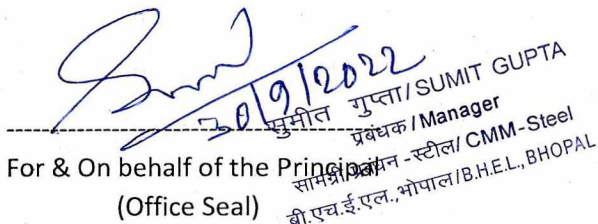 30/9/2022
सुमीत गुप्ता/SUMIT GUPTA
प्रबंधक/Manager
सामग्री प्रबंधन -स्टील/ CMM-Steel
बी.एच.ई.एल.,भोपाल/B.H.E.L., BHOPAL
For & On behalf of the Principal
(Office Seal)